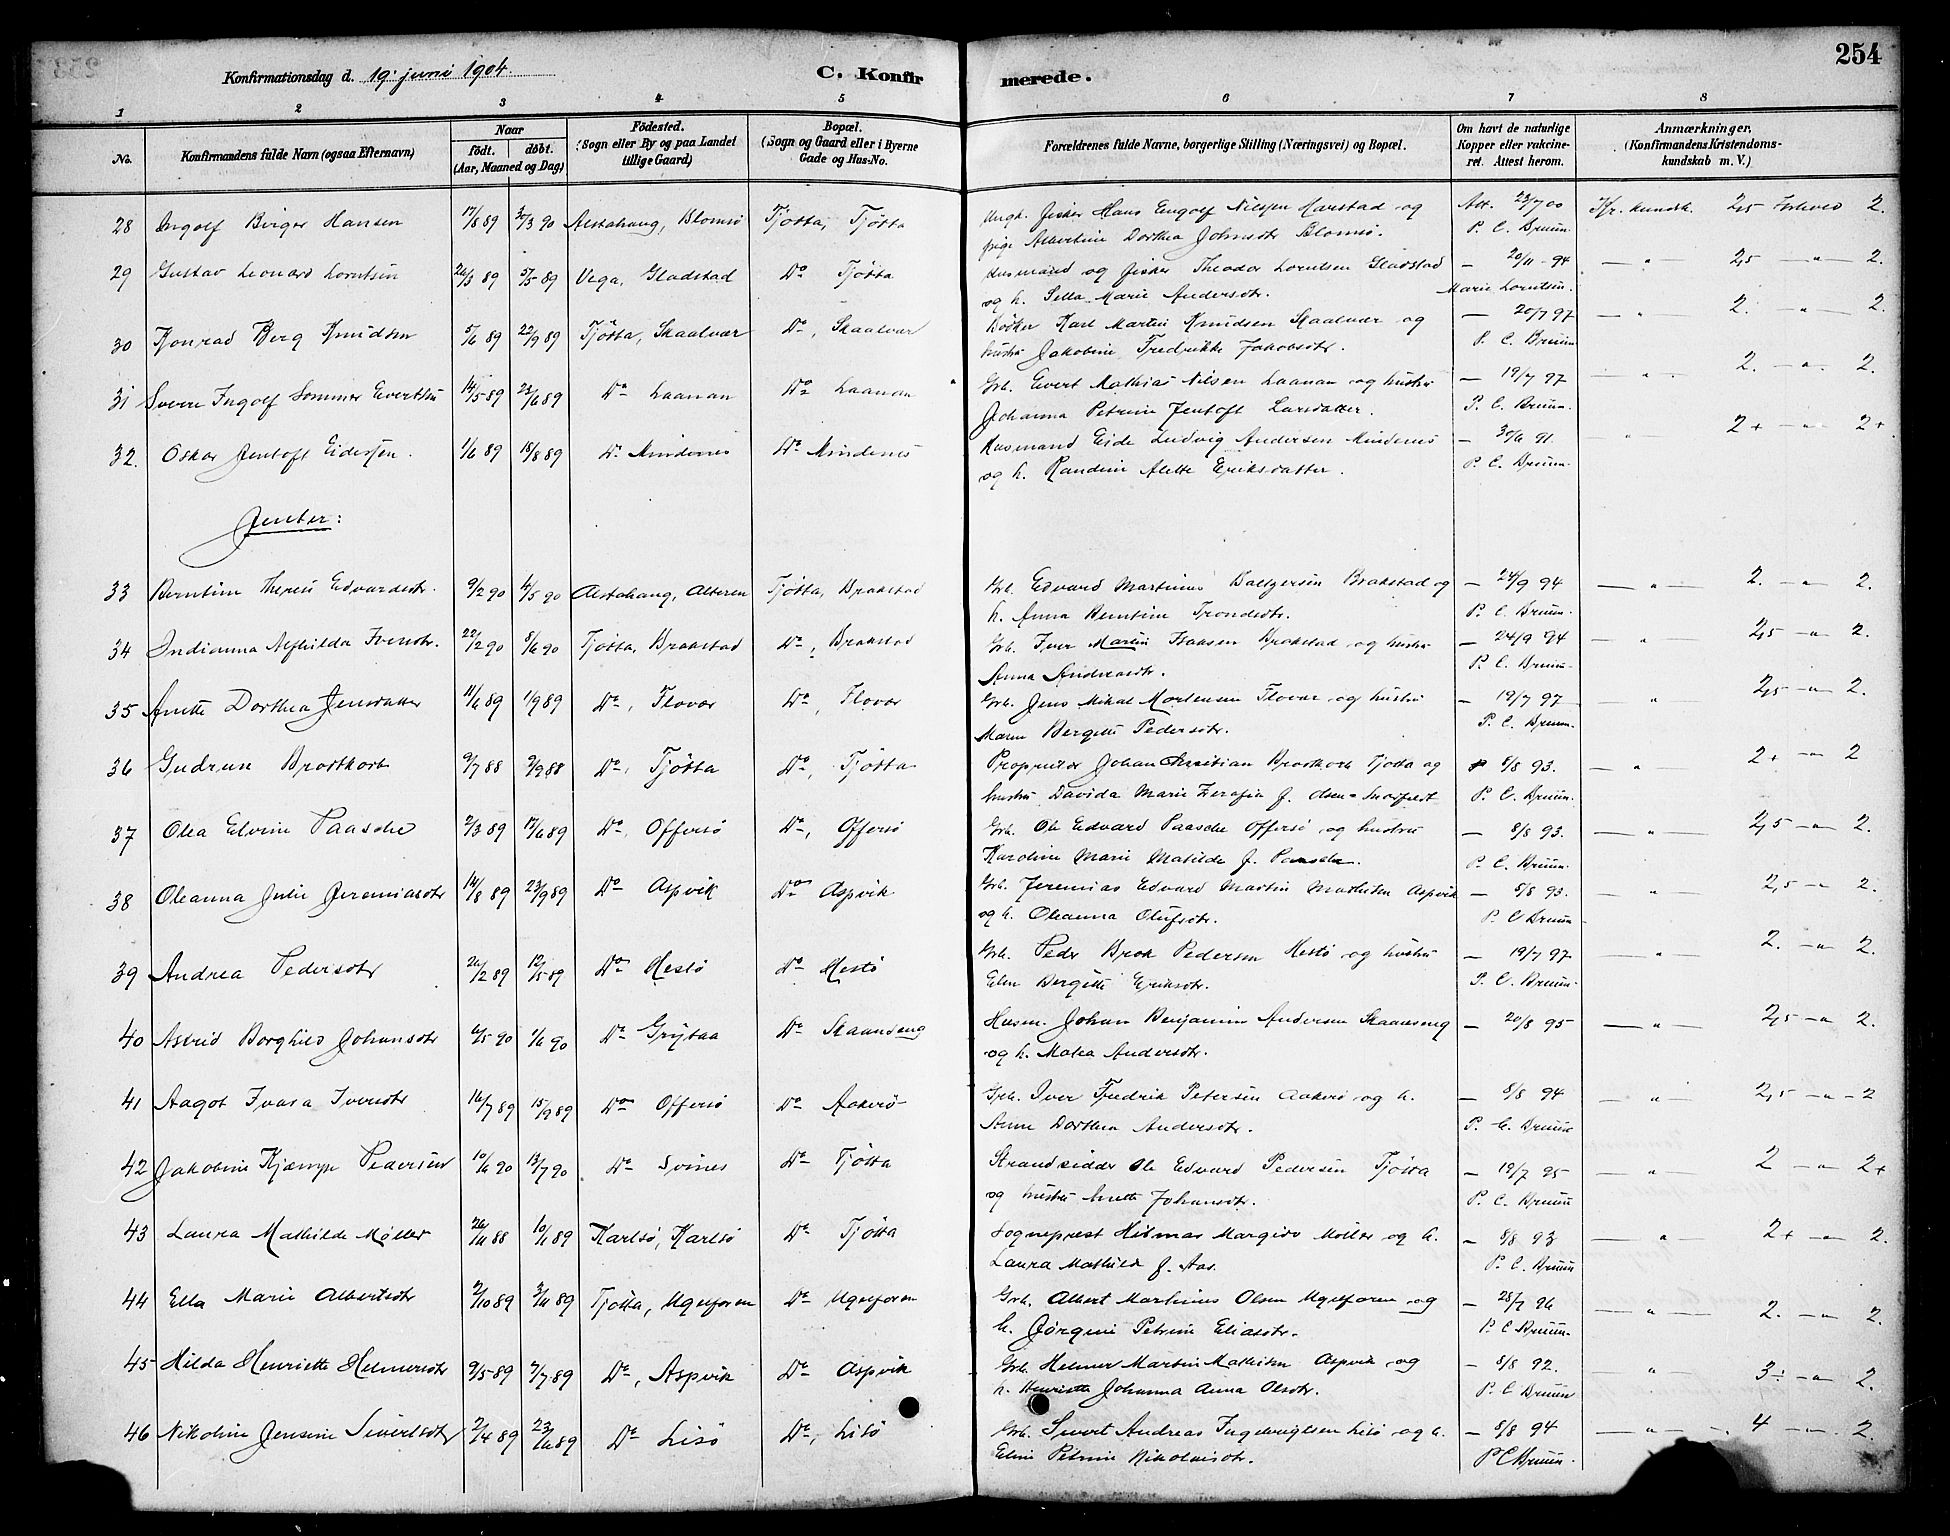 254
Konfirmationsdag d. 19. juni 1904.
C. Konfirmerede.
1 2 3 4 5 6 7 8
No.
Konfirmandens fulde Navn (ogsaa Efternavn)
Naar
født. døbt.
(Aar, Maaned og Dag)
Fødested.
(Sogn eller By og paa Landet
tillige Gaard)
Bopæl.
(Sogn og Gaard eller i Byerne
Gade og Hus-No.
Forældrenes fulde Navne, borgerlige Stilling (Næringsvei) og Bopæl.
Om havt de naturlige
Kopper eller vaccine-
ret. Attest herom.
Anmærkninger.
(Konfirmandens Kristendoms-
kundskab m. V.)
28 Ingolf Birger Hansen 17/8 89 30/3 90 Alstahaug, Blomsø Tjøtta, Tjøtta Ungk. fisker Hans Engolf Nilsen Marstad og Att. 23/7 00 Kr. kundsk. 2,5 Forhold 2.
pige Albertine Dorthea Johnsdtr Blomsø. P. C. Bruun.
29 Gustav Leonard Lorntsen 26/3 89 5/5 89 Vega, Gladstad Do Tjøtta Husmand og fisker Theodor Lorntsen Gladstad — 20/11 94 — " — 2,5 — " — 2.
og h. Sella Marie Andersdtr. Marie Lorntsen.
30 Konrad Berg Knudsen 5/6 89 22/9 89 Tjøtta, Skaalvær Do, Skaalvær Bødker Karl Martin Knudsen Skaalvær og — 20/7 97 — " — 2. — " — 2.
hustru Jakobine Fredrikke Jakobsdtr. P. C. Bruun
31 Sverre Ingolf Sommer Evertsen 14/5 89 23/6 89 Do Laanan Do Laanan Grb. Evert Mathias Nilsen Laanan og hustru — 19/7 97 — " — 2. — " — 2.
Johanna Petrine Jentoft Larsdatter. P. C. Bruun.
32. Oskar Jentoft Eidersen. 1/6 89 18/8 89 Do Mindenes Do Mindenes Husmand Eide Ludvig Andersen Mindenes — 30/6 91. — " — 2+ — " — 2+.
og h. Randine Alette Eriksdatter. P. C. Bruun.
Jenter:
33 Berntine Therese Edvardsdtr. 9/2 90 4/5 90 Alstahaug, Alteren Tjøtta, Brakstad Grb. Edvard Martinus Baltzersen Brakstad og — 24/9 94 — " — 2. — " — 2.
h. Anna Berntine Trondsdtr. P. C. Bruun.
34 Indianna Alfhilda Iversdtr. 22/2 90 8/6 90 Tjøtta, Brakstad Do, Brakstad Grb. Iver Martin Isaksen Brakstad og hustru — 24/9 94 — " — 2,5 — " — 2.
Anna Andersdtr. P. C. Bruun.
35 Anette Dorthea Jensdatter 11/6 89 1/9 89 Do, Flovær Do, Flovær Grb. Jens Mikal Mortensen Flovær og hustru — 19/7 97 — " — 2,5 — " — 2.
Maren Bergitte Pedersdtr. P. C. Bruun.
36 Gudrun Brodtkorb 9/7 88 9/9 88 Do, Tjøtta Do, Tjøtta Proprietær Johan Christian Brodtkorb Tjøtta og 8/8 93. — " — 2+ — " — 2
hustru Davida Marie Zerafia f. Olsen P. C. Bruun.
37 Olea Elvine Paasche 2/3 89 17/6 89 Do, Offersø Do, Offersø Grb. Ole Edvard Paasche Offersø og hustru — 8/8 93. — " — 2,5 — " — 2.
Karoline Marie Matilde f. Paasche. P. C. Bruun.
38 Oleanna Julie Jeremiasdtr 14/8 89 23/9 89 Do Aspvik Do Aspvik Grb. Jeremias Edvard Martin Mathisen Aspvik — 8/8 93. — " — 2,5 — " 2.
og h. Oleanna Olufsdtr. P. C Bruun
39 Andrea Pedersdtr 26/2 89 12/5 89 Do Hestø Do Hestø Grb. Peder Brok Pedersen Hestø og hustru — 19/7 97 — " — 2. — " — 2.
Elen Bergitte Eriksdtr. P. C. Bruun.
40 Astrid Borghild Johansdtr 6/5 90 1/6 90 Do Grytaa Do Skaanseng Husm. Johan Benjamin Andersen Skaanseng — 20/8 95 — " — 2,5 — " 2.
og h. Malea Andersdtr.
41 Aagot Ivara Iversdtr 16/7 89 15/9 89 Do Offersø Do Aakerø Grb. Iver Fredrik Petersen Aakerø og h. — 8/8 94 — " — 2,5 — " — 2
Anne Dorthea Andersdtr. P. C. Bruun
42 Jakobine Kjempe Pedersen 10/6 90 13/7 90 Do Svines Do Tjøtta Strandsidder Ole Edvard Pedersen Tjøtta — 19/7 95 — " — 2 — " — 2+
og hustru Anette Johansdtr. P. C. Bruun
43 Laura Mathilde Møller 26/11 88 10/1 89 Karlsø, Karlsø Do Tjøtta Sogneprest Hilmar Margido Møller og h. — 8/8 93 — " — 2+ — " — 2.
Laura Mathilde f. Aas. P. C. Bruun
44 Ella Marie Albertsdtr 2/10 89 3/11 89 Tjøtta, Ugelforen Do Ugelforen Grb. Albert Martinus Olsen Ugelforen og — 28/7 96 — " — 2. — " — 2.
h. Jørgine Petrine Eliasdtr. P. C Bruun.
45 Hilda Henriette Helmersdtr 9/5 89 7/7 89 Do, Aspvik Do Aspvik Grb. Helmer Martin Mathisen Aspvik og — 8/8 92. — " — 3÷ — " — 2.
h. Henriette Johanna Anna Olsdtr. P. C Bruun
46 Nikoline Jensine Sivertsdtr 2/4 89 23/6 89 Do Lisø Do, Lisø Grb. Sivert Andreas Ingebrigtsen Lisø og h. — 8/8 94 — " — 4 — " — 2.
Eline Petrine Nikolaisdtr. P C Bruun.